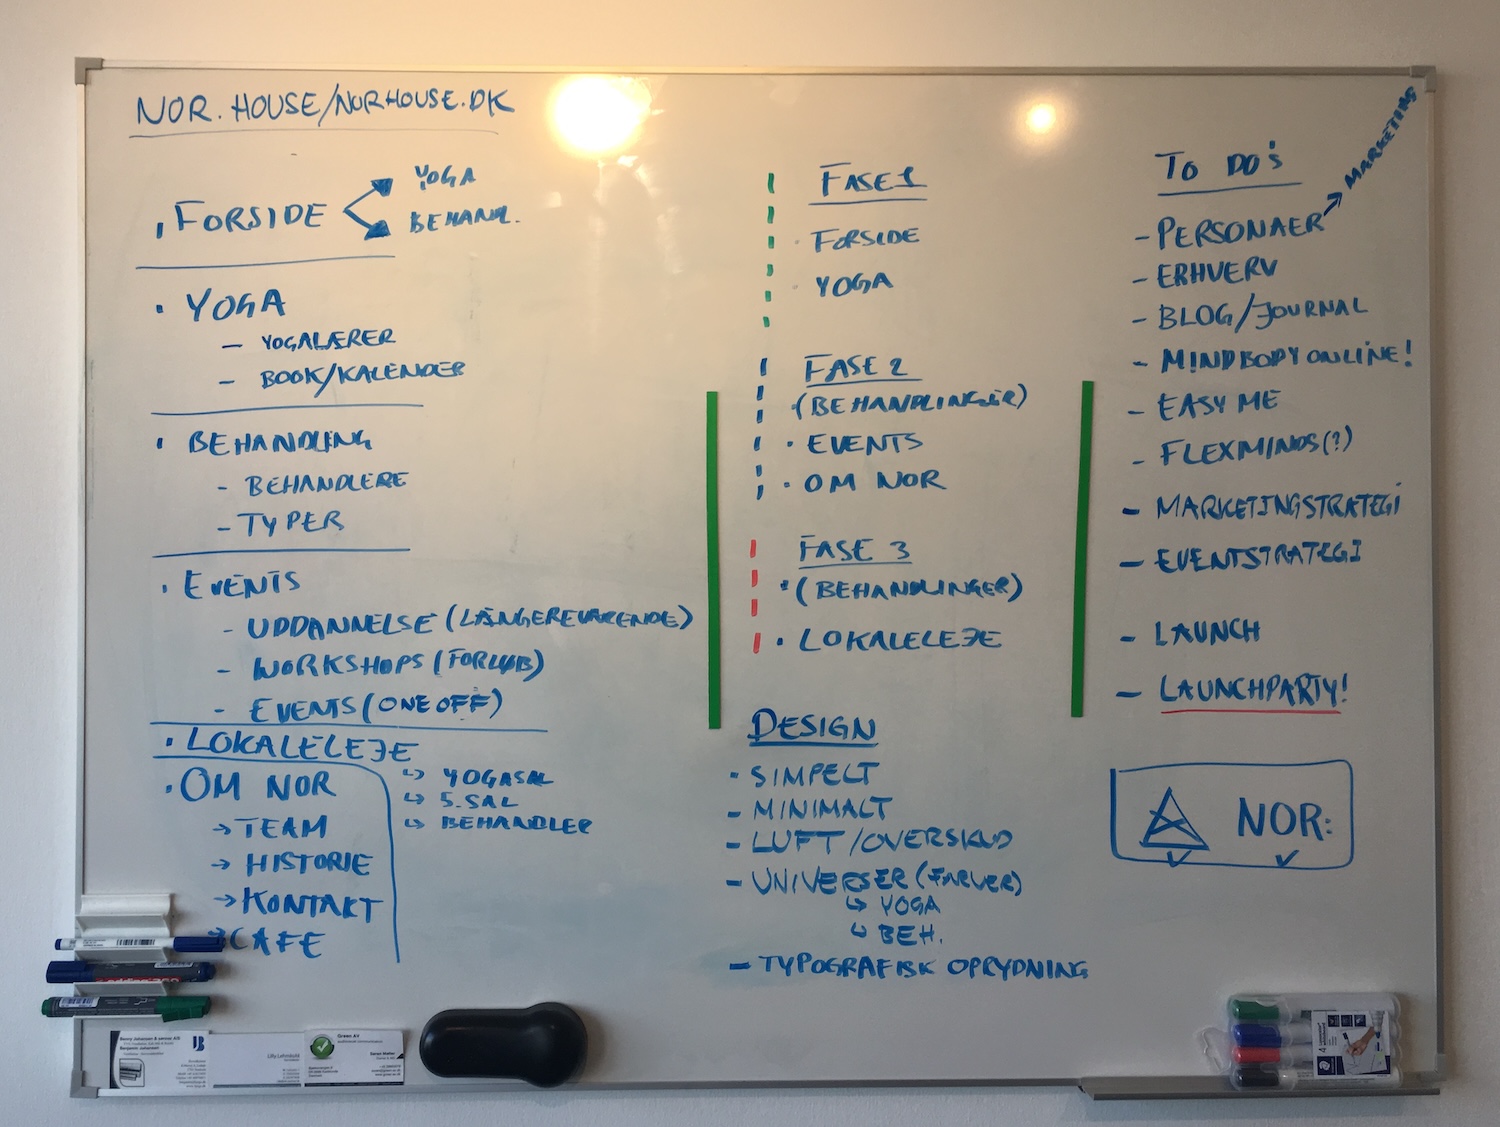 NOR.HOUSE/NORHOUSE.DK
• FORSIDE
YOGA
BEHANDL.
• YOGA
- YOGALÆRER
- BOOK/KALENDER
• BEHANDLING
- BEHANDLERE
- TYPER
• EVENTS
- UDDANNELSE (LÆNGEREVARENDE)
- WORKSHOPS (FORLØB)
- EVENTS (ONE OFF)
• LOKALELEJE
↳ YOGASAL
↳ 5. SAL
↳ BEHANDLER
• OM NOR
→ TEAM
→ HISTORIE
→ KONTAKT
CAFE
FASE 1
• FORSIDE
• YOGA
FASE 2
• (BEHANDLINGER)
• EVENTS
• OM NOR
FASE 3
• (BEHANDLINGER)
• LOKALELEJE
DESIGN
• SIMPELT
- MINIMALT
- LUFT/OVERSKUD
- UNIVERSER (FARVER)
↳ YOGA
↳ BEH.
- TYPOGRAFISK OPRYDNING
TO DO's
- PERSONAER → MARKETING
- ERHVERV
- BLOG/JOURNAL
- MINDBODYONLINE!
- EASYME
- FLEXMINDS(?)
- MARKETINGSTRATEGI
- EVENTSTRATEGI
- LAUNCH
- LAUNCHPARTY!
NOR:
Green AV